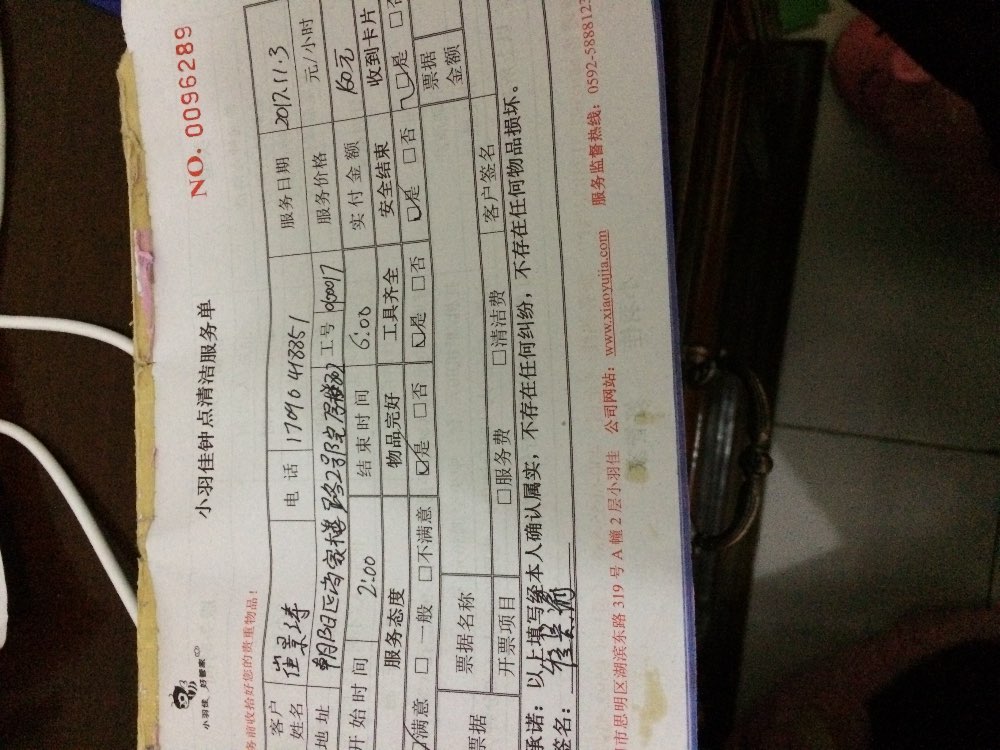 小羽佳 好管家
NO. 0096289
小羽佳钟点清洁服务单
务前收拾好您的贵重物品！
客户姓名 崔景涛 电话 17090418851 服务日期 2017.11.3
地址 朝阳区尚家楼路2号院 工号 060017 服务价格 元/小时
开始时间 2:00 结束时间 6:00 实付金额 160元
服务态度 物品完好 工具齐全 安全结束 收到卡片
满意 □一般 □不满意 □是 □否 □是 □否 □是 □否 □是
票据 票据名称 票据金额
开票项目 □服务费 □清洁费 客户签名
承诺：以上填写经本人确认属实，不存在任何纠纷，不存在任何物品损坏。
签名：
市思明区湖滨东路 319 号 A 幢 2 层小羽佳 公司网站：www.xiaoyujia.com 服务监督热线：0592-5888123